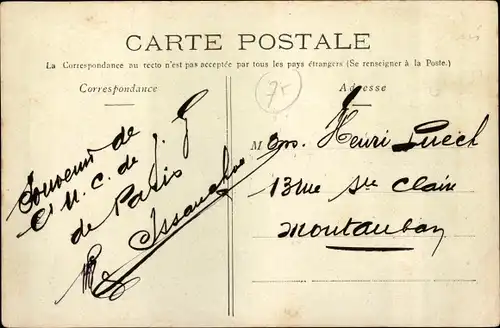 CARTE POSTALE
La Correspondance au recto n'est pas acceptée par tous les pays étrangers (Se renseigner à la Poste.)
Correspondance
Souvenir de
l'U. C. de J. G
de Paris
Adresse
75
M on. Henri Puech
13 rue Ste Claire
Montauban